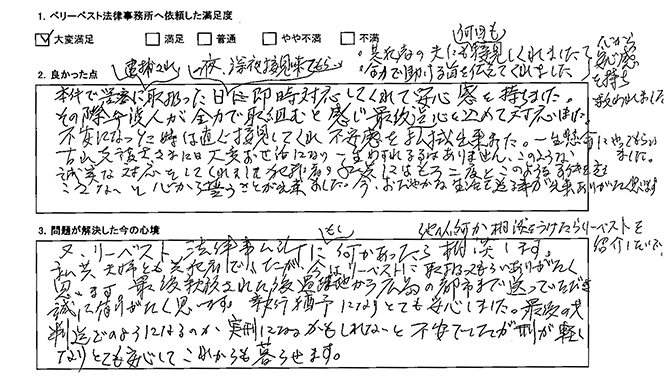 1. ベリーベスト法律事務所へ依頼した満足度
大変満足 満足 普通 やや不満 不満
何回も
共犯者の夫にも接見しくれました
全力で助ける旨を伝えてくれました
だから安心感を持ち救われました
2. 良かった点
逮捕され 夜、深夜接見来てもらい
本件で警察に取扱った日に即時対応してくれて安心感を持ちました。
その際弁護人が全力で取組むと感じ最後迄心を込めて対応しました。
不安になった時は直ぐ接見してくれ不安感を払拭出来ました。一生懸命にやってもらいました。
弁護士さまには大変お世話になり一生わすれる事はありません、このような
誠実な対応をしてくれました
こさないと心から誓うことが出来ました。今、おだやかな生活を送る事が出来ありがたく思います
3. 問題が解決した今の心境
もし
他人何か相談をうけたらリーベストを紹介したいです。
又、リーベスト法律事ム所に何かあったら相談します。
私共夫婦とも共犯者でしたが、今はリーベストに取扱ってもらいありがたく
思います 最後釈放された後 から広島の都市まで送っていただき
誠に有りがたく思います。執行猶予になりとても安心しました。最後の
判送でのようになるのか 実刑になるかもしれないと不安でしたが刑が軽く
なりとても安心してこれからも暮らせます。